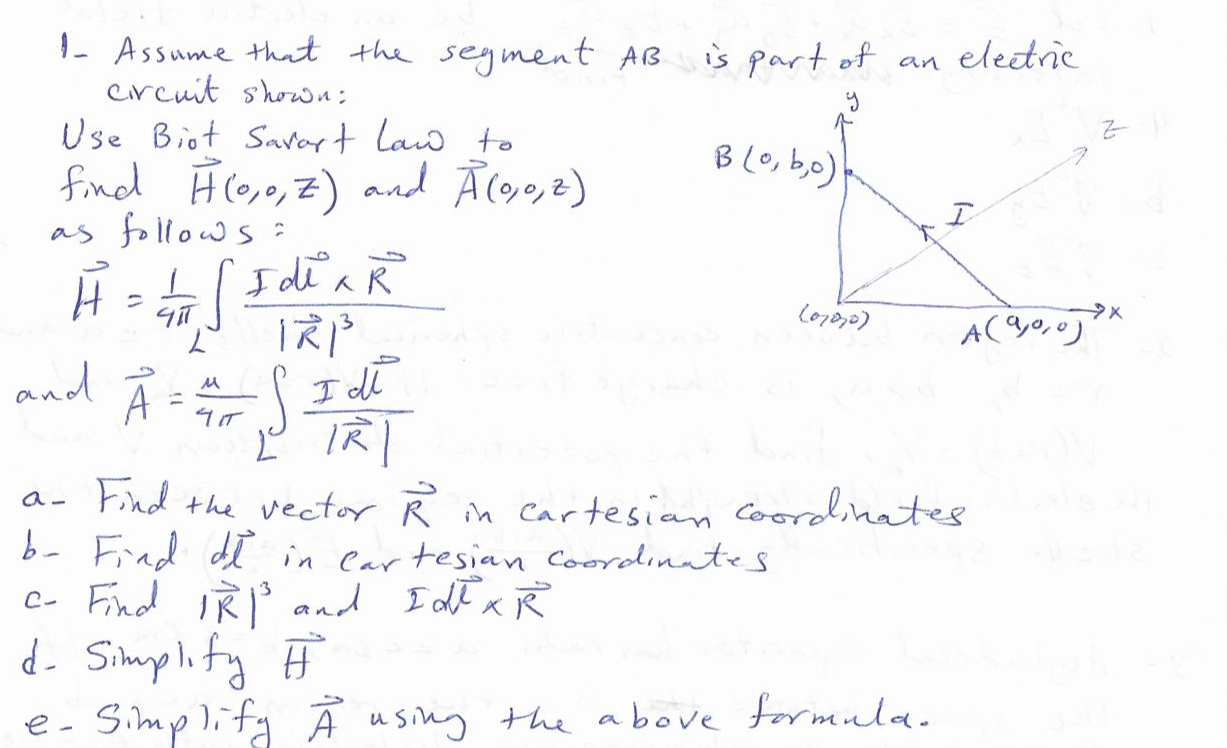 1- Assume that the segment AB is part of an electric
circuit shown:
Use Biot Savart Law to
find H⃗(0,0,z) and A⃗(0,0,z)
as follows:
H⃗ = 1/4π ∫_L I dl⃗ × R⃗ / |R⃗|³
and A⃗ = μ/4π ∫_L I dl⃗ / |R⃗|
y
z
B(0,b,0)
I
(0,0,0)
A(a,0,0)
x
a- Find the vector R⃗ in cartesian coordinates
b- Find dl⃗ in cartesian coordinates
c- Find |R⃗|³ and I dl⃗ × R⃗
d- Simplify H⃗
e- Simplify A⃗ using the above formula.